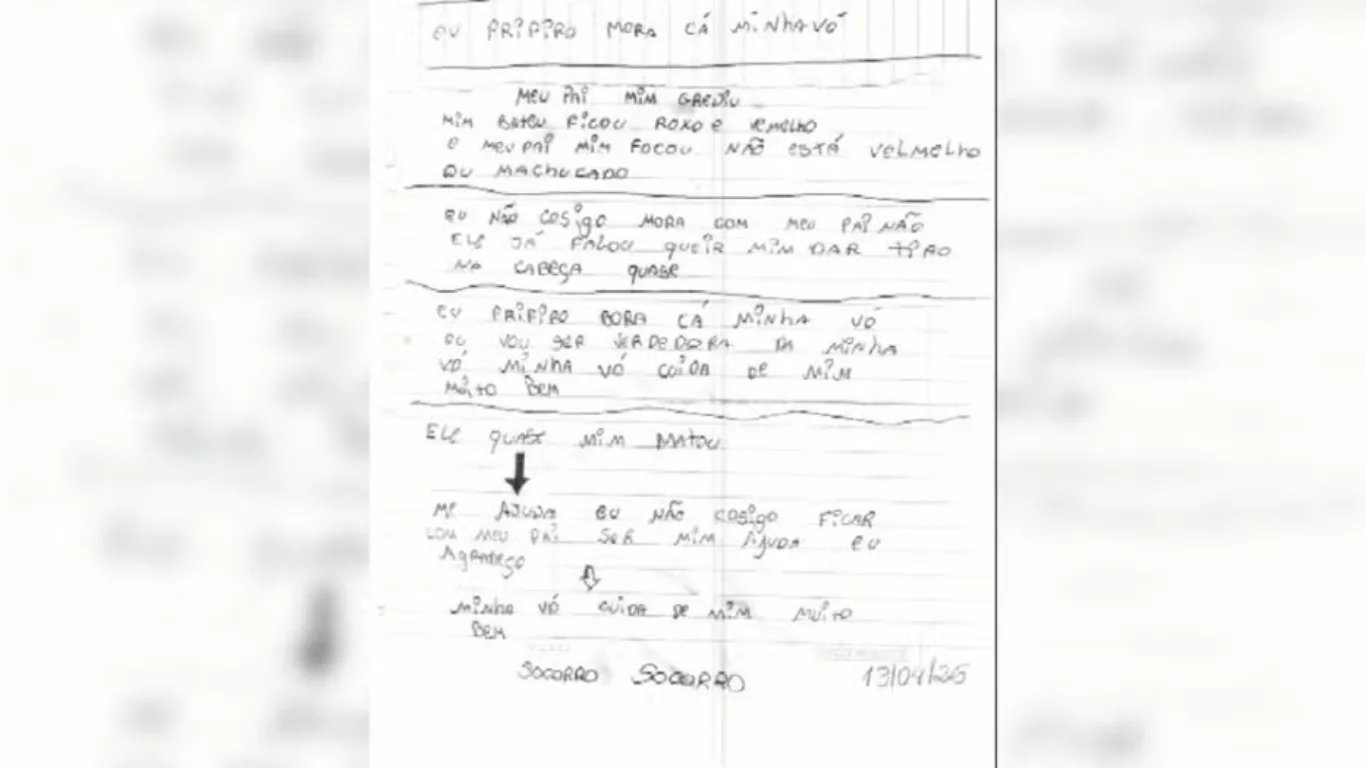 EU PRIFIRO MORA CÁ MINHA VÓ
MEU PAI MIM GREDIU
MIM BATEU FICOU ROXO E VEMELHO
E MEU PAI MIM FOCOU NÃO ESTÁ VELMELHO
OU MACHUCADO
EU NÃO COSIGO MORA COM MEU PAI NÃO
ELE JÁ FALOU QUEIR MIM DAR TIRO
NA CABEÇA QUASE
EU PRIFIRO BORA CÁ MINHA VÓ
EU VOU SER DA MINHA
VÓ MINHA VÓ CUIDA DE MIM
MUITO BEM
ELE QUASE MIM MATOU
ME AJUDA EU NÃO COSIGO FICAR
COM MEU PAI SER MIM AJUDA EU
AGRADEÇO
MINHA VÓ CUIDA DE MIM MUITO
BEM
SOCORRO SOCORRO 13/04/25